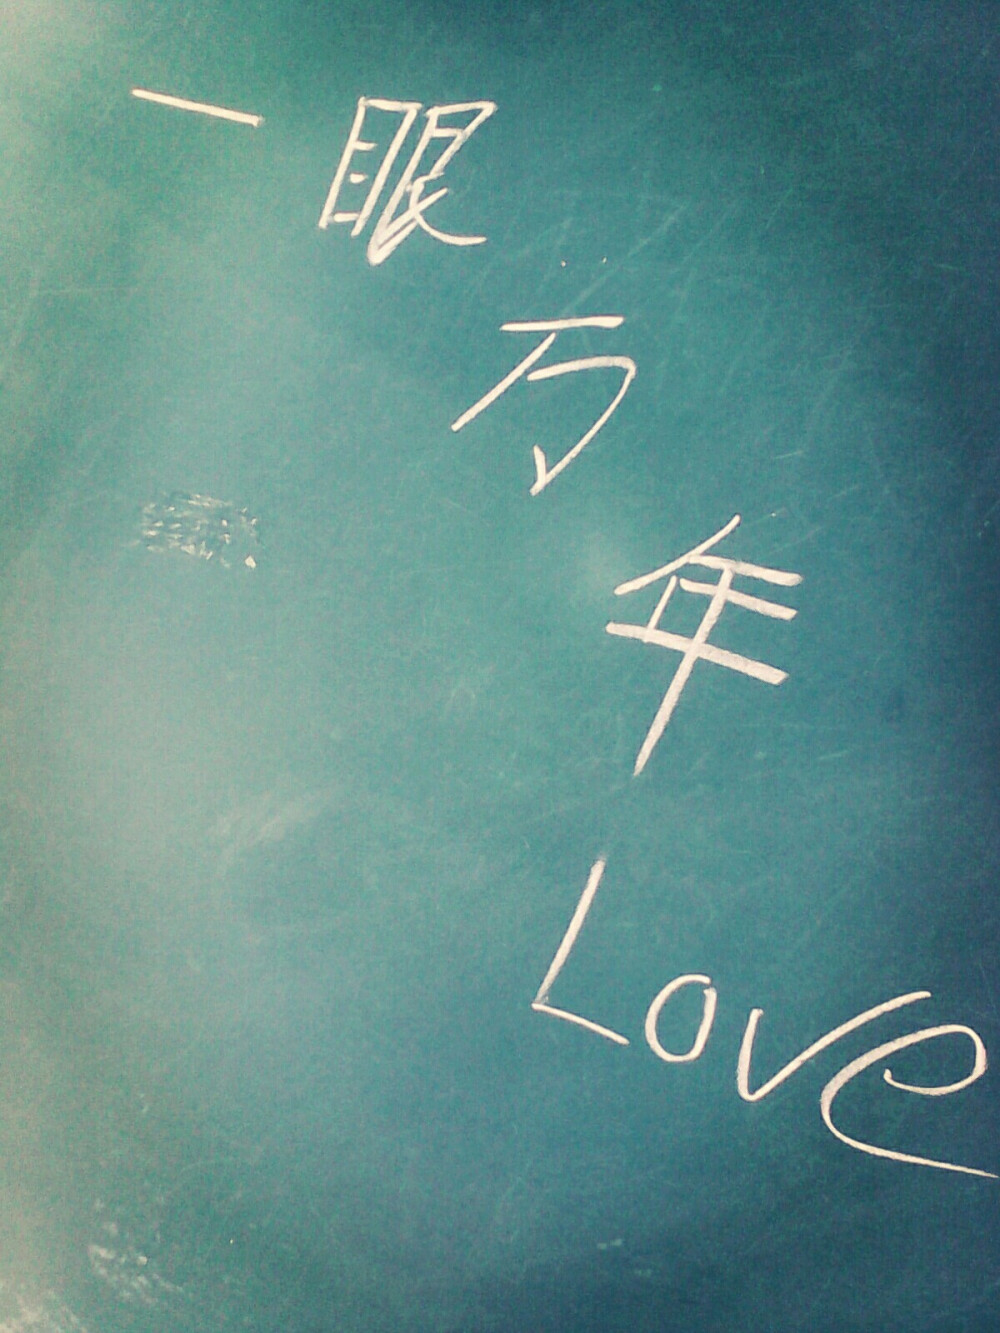 一眼万年
Love